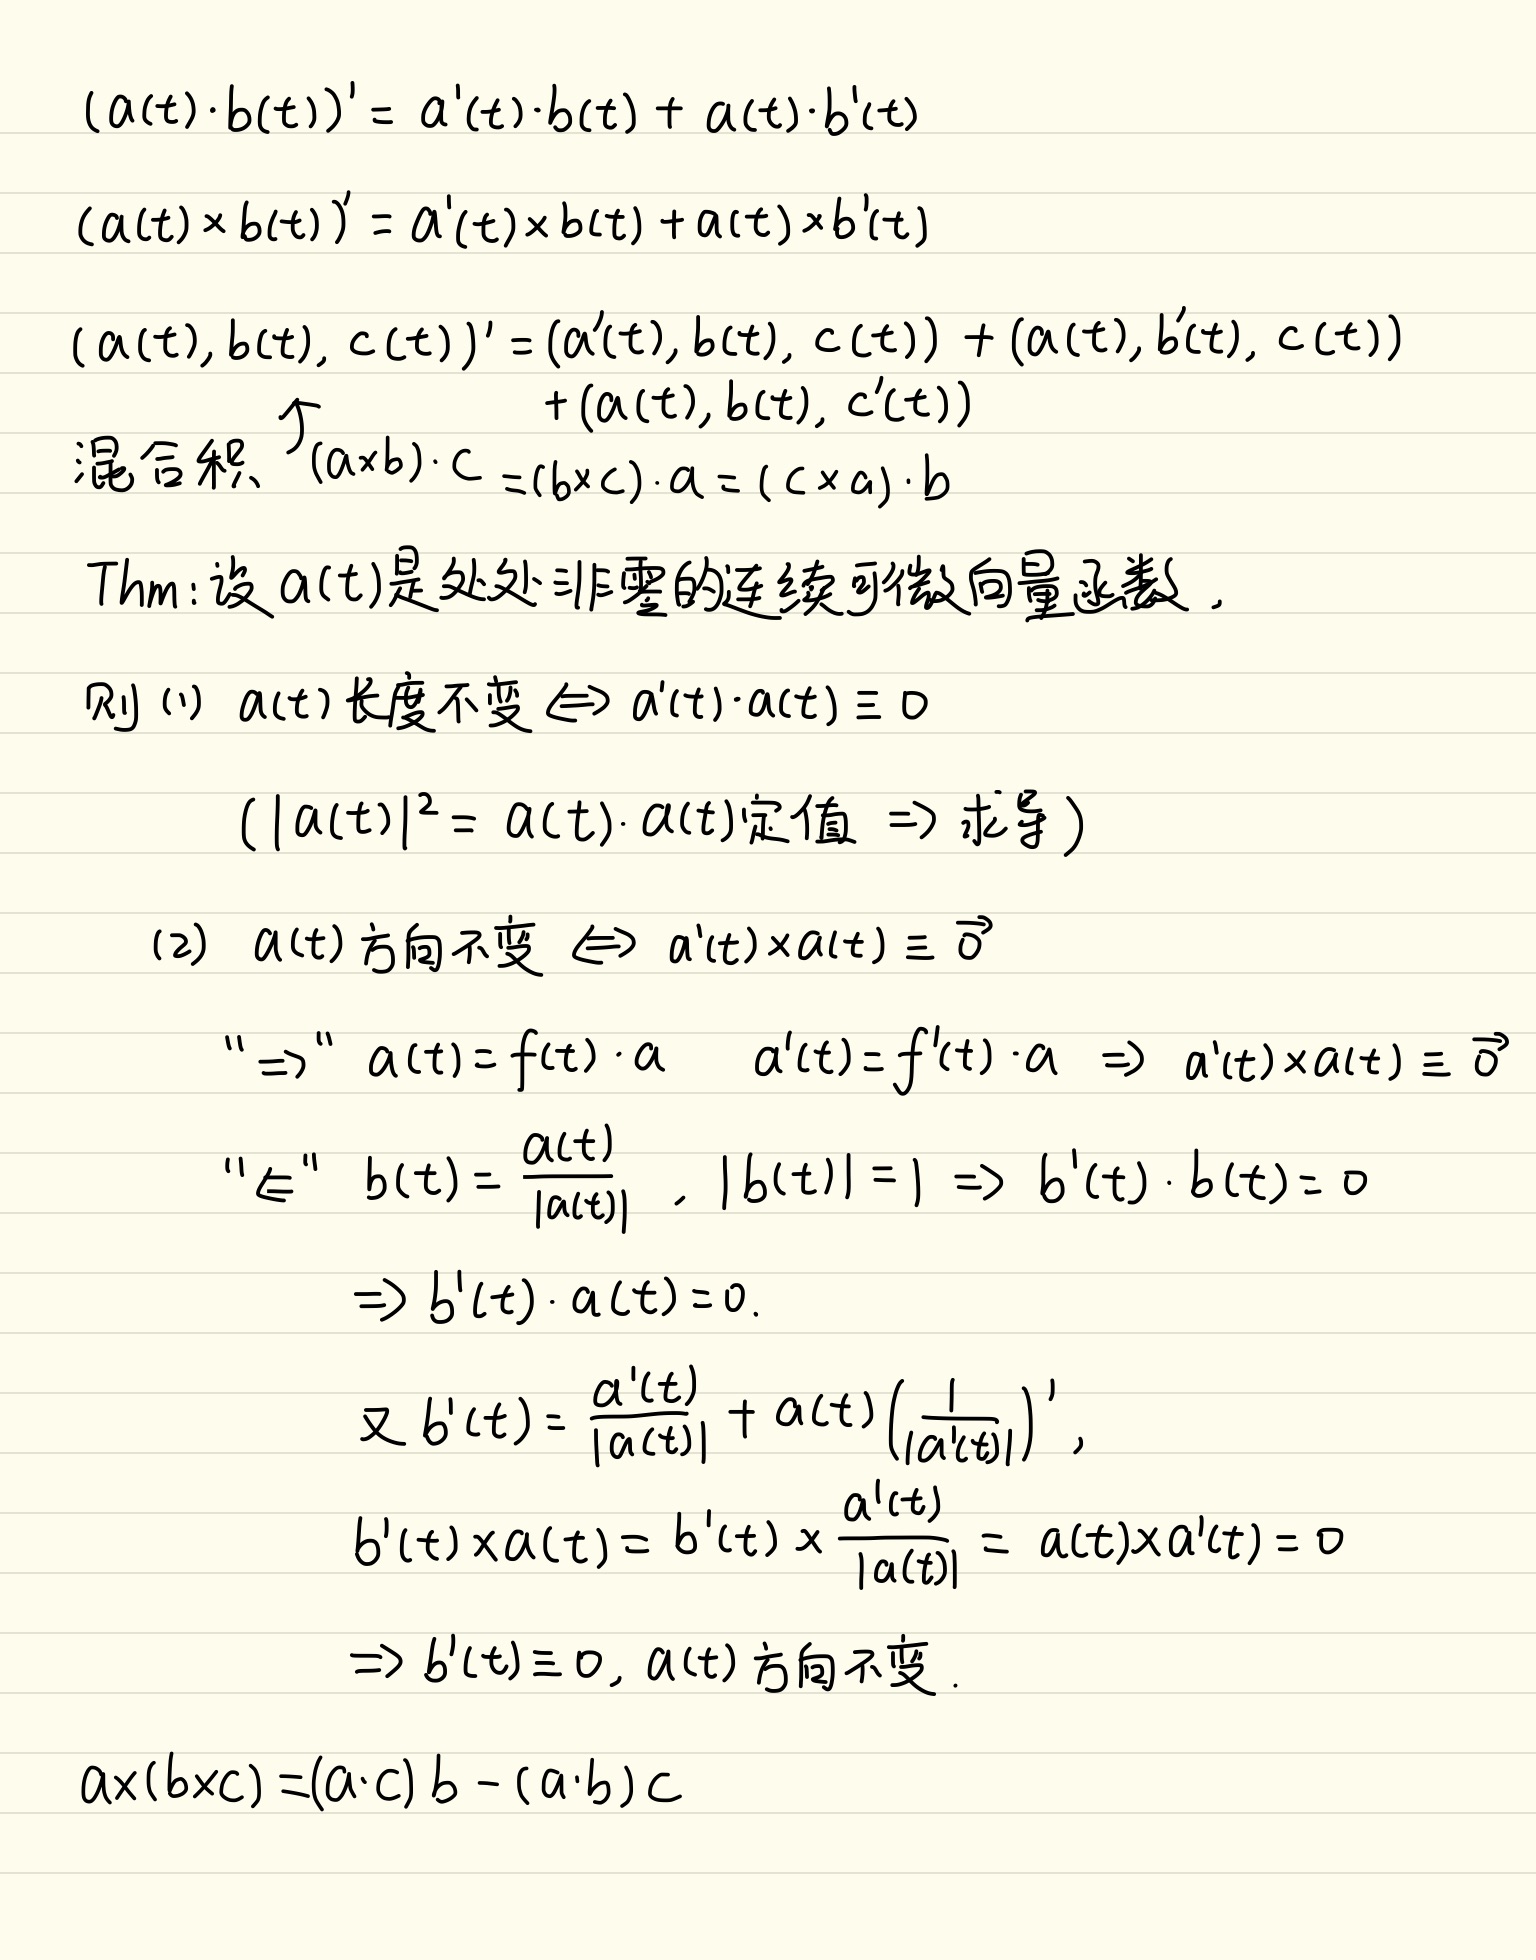 (a(t)·b(t))' = a'(t)·b(t) + a(t)·b'(t)
(a(t)×b(t))' = a'(t)×b(t) + a(t)×b'(t)
(a(t), b(t), c(t))' = (a'(t), b(t), c(t)) + (a(t), b'(t), c(t))
+ (a(t), b(t), c'(t))
混合积 ↑ (a×b)·c = (b×c)·a = (c×a)·b
Thm: 设 a(t)是处处非零的连续可微向量函数.
则 (1) a(t) 长度不变 ⇔ a'(t)·a(t) ≡ 0
(|a(t)|² = a(t)·a(t)定值 ⇒ 求导)
(2) a(t) 方向不变 ⇔ a'(t)×a(t) ≡ 0⃗
"⇒" a(t) = f(t)·a a'(t) = f'(t)·a ⇒ a'(t)×a(t) ≡ 0⃗
"⇐" b(t) = a(t)/|a(t)| , |b(t)| = 1 ⇒ b'(t)·b(t) = 0
⇒ b'(t)·a(t) = 0.
又 b'(t) = a'(t)/|a(t)| + a(t)(1/|a'(t)|)',
b'(t)×a(t) = b'(t) × a'(t)/|a(t)| = a(t)×a'(t) = 0
⇒ b'(t) ≡ 0, a(t) 方向不变.
a×(b×c) = (a·c)b - (a·b)c